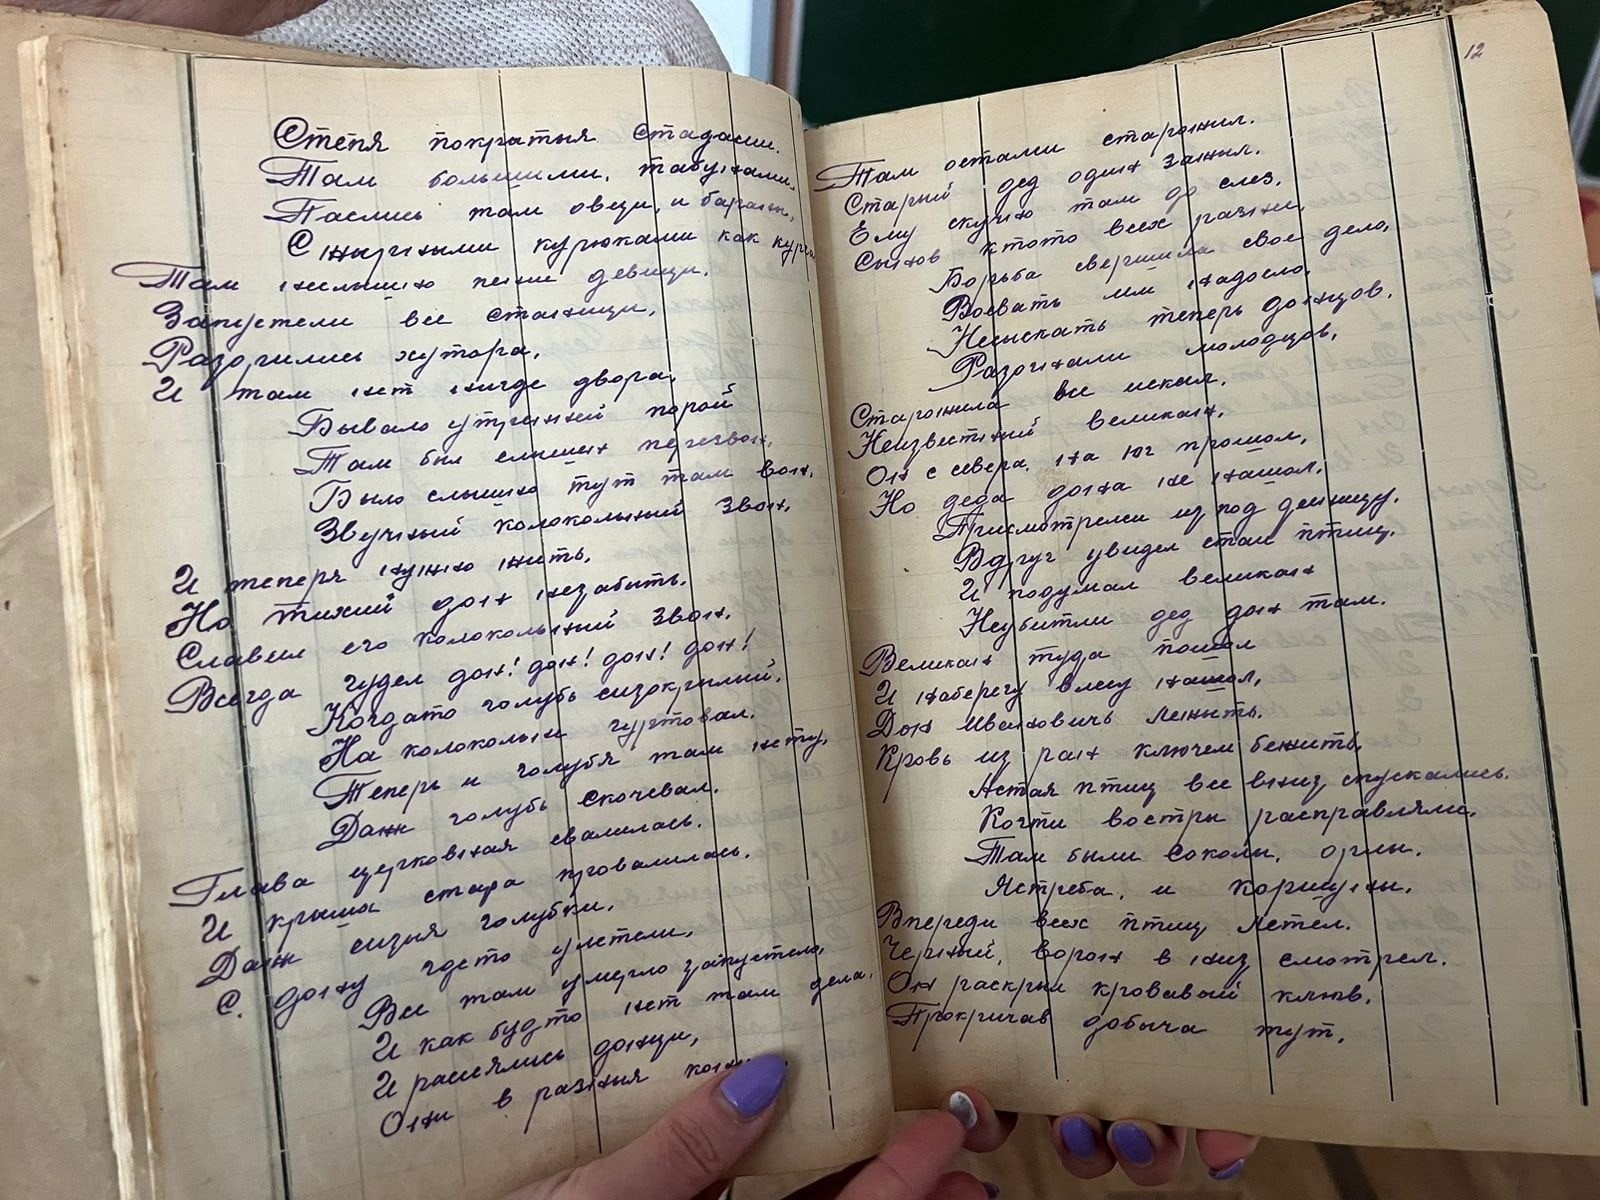 Степя покрытыя стадами.
Там большими, табунами.
Паслись там овеци, и бараны,
С жирными курюками как
Там неслышно песни девици.
Запустели все станици,
Разорились хутора,
И там нет нигде двора,
Бывало утринней порой
Там был слышен перезвон,
Было слышно тут там вон,
Звучный колокольний звон,
И теперя нужно жить,
Но тихий дон незабыть,
Славил его колокольний звон,
Всегда гудел дон! дон! дон! дон!
Когдато голубь сизокрилий,
На колокольни гуртовал.
Теперь и голубя там нету,
Даже голубь скочевал.
Глава церковная свалилась.
И крыша стара провалилась.
Даже сизыя голубки,
С. дону гдето улетели,
Все там умерло запустело,
И как будто нет там дела,
И рассялись донци,
Они в разныя
12
Там остался старожил.
Старый дед один зажил.
Ему скучно там до слез,
Сынов ктото всех разнял,
Борьба свершила свое дело,
Воевать им надоело,
Неискать теперь донцов,
Разогнали молодцов,
Старожила все искал,
Неизвестный великан,
Он с севера, на юг прошол,
Но деда дона не нашол,
Присмотрелси из под денницу,
Вдруг увидел стаи птиц,
И подумал великан
Неубитли дед дон там.
Великан туда пошол
И наберегу влесу нашол,
Дон Ивановичь лежыть.
Кровь из ран ключем бежить,
Астая птиц все вниз спускались.
Когти востры расправляли,
Там были соколы, орлы.
Ястреба, и коршуны.
Впереди всех птиц летел.
Черный, ворон в низ смотрел.
Он раскрыл кровавый клюв,
Прокричав добыча тут,